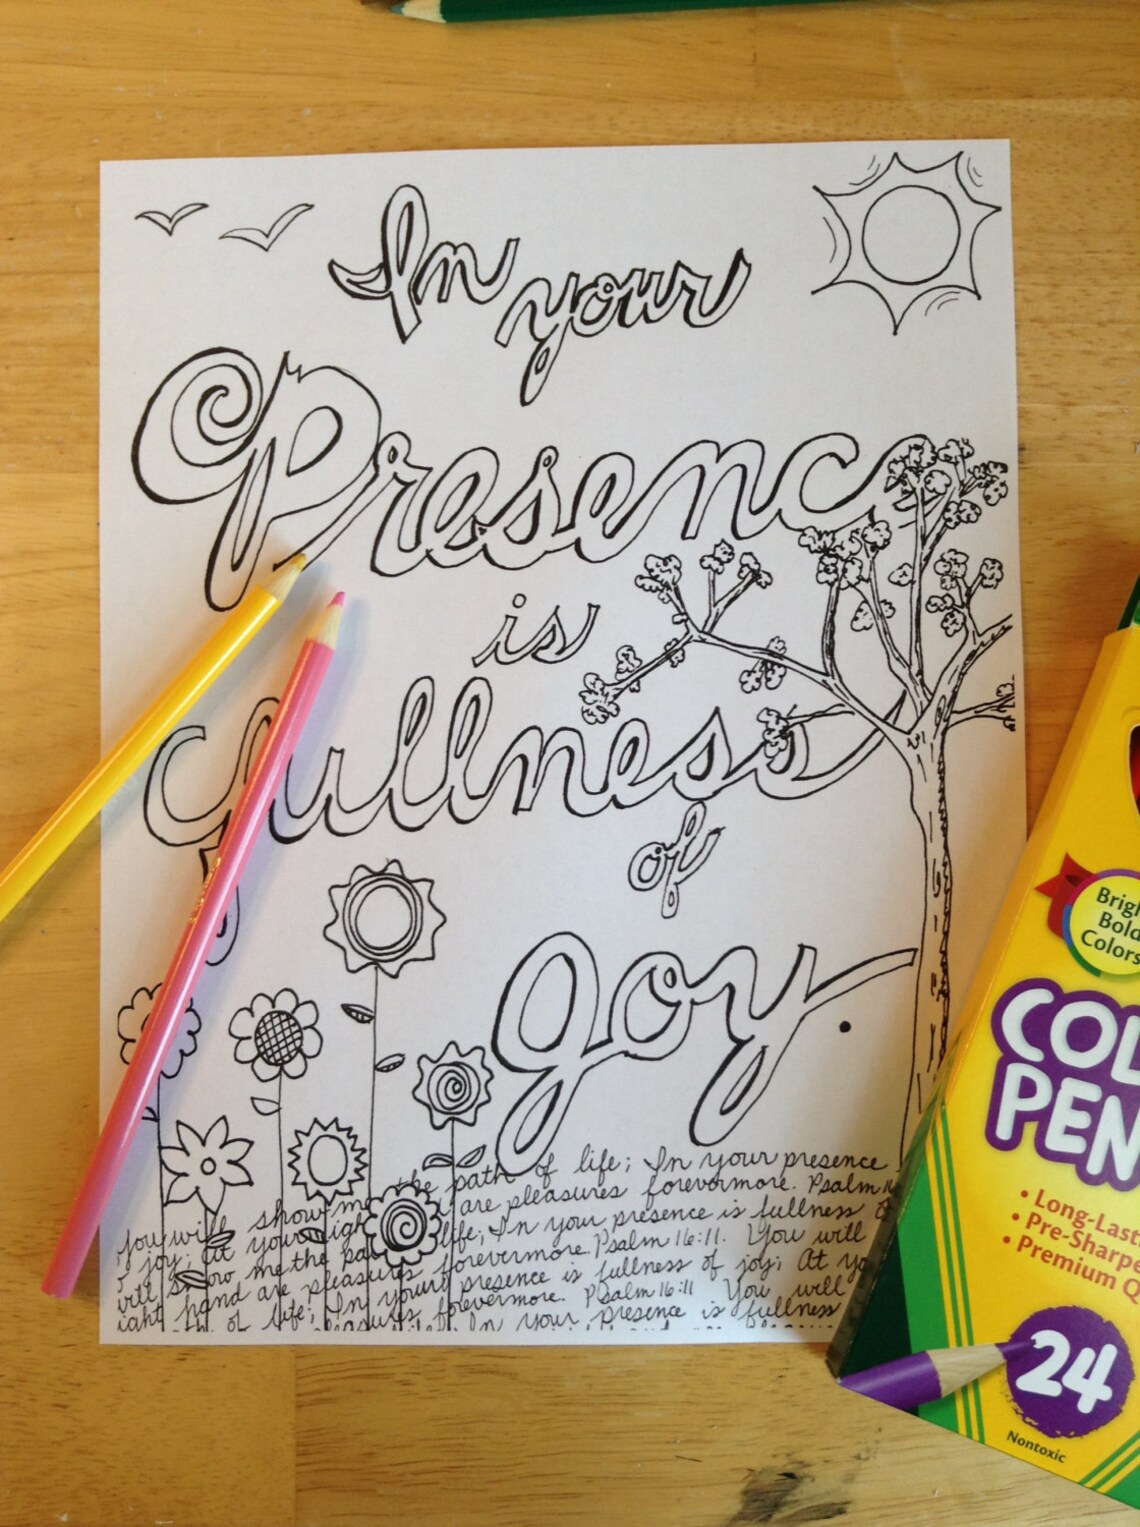 In your
Presence
is
fullness
of
joy.
the path of life; In your presence
you will show me are pleasures forevermore. Psalm
joy; at your life; In your presence is fullness
will show me the forevermore Psalm 16:11. You will
hand are pleasures presence is fullness of joy; At
of life; In your forevermore. Psalm 16:11 You will
In your presence is fullness
Brig
Bold
Colors
COL
PEN
• Long-Last
• Pre-Sharpe
• Premium Q
24
Nontoxic